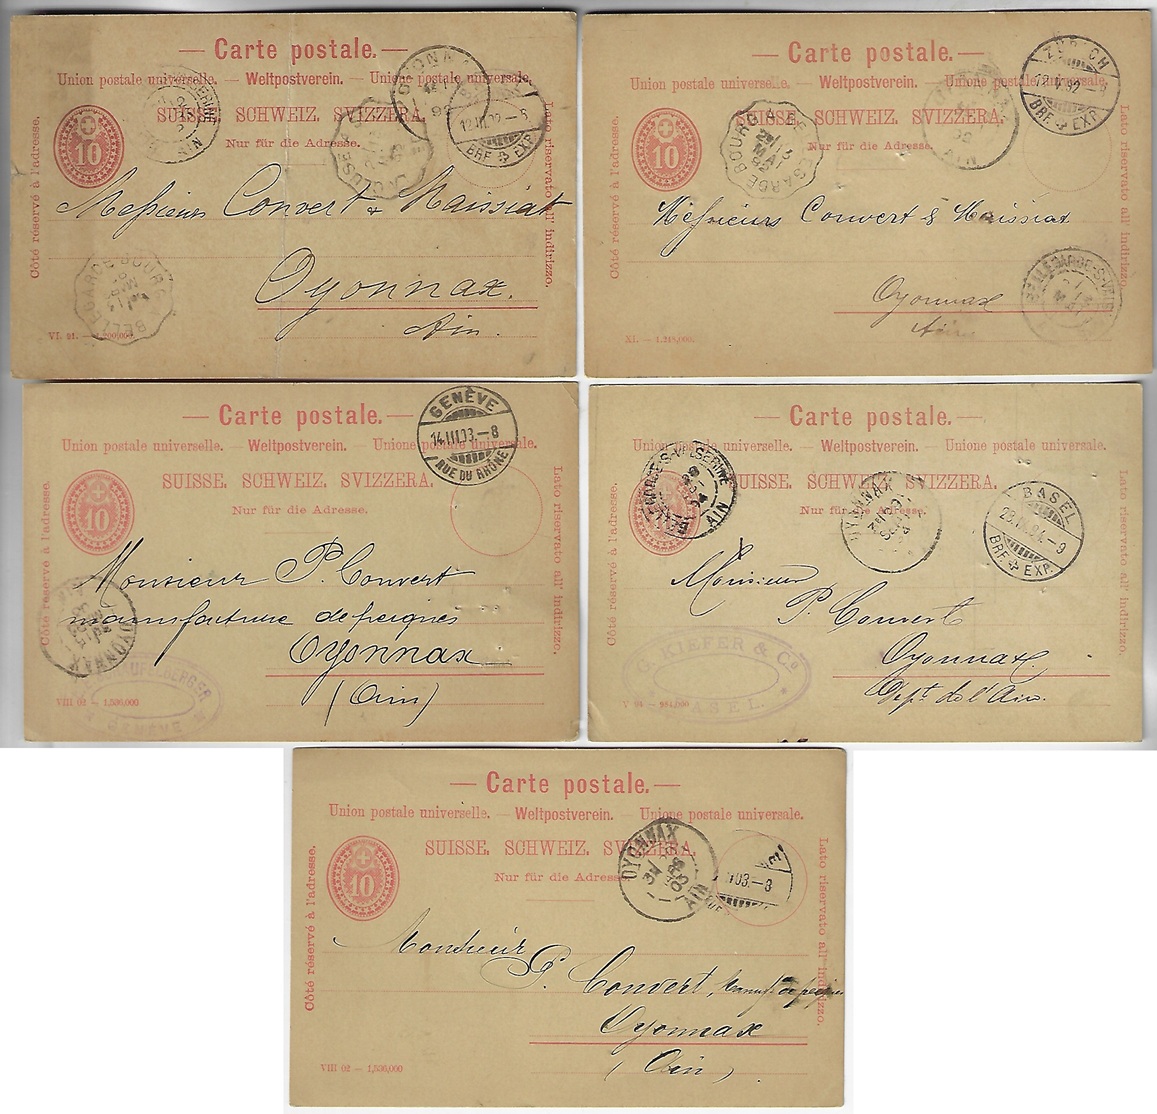 — Carte postale. —
Union postale universelle. — Weltpostverein. — Unione postale universale.
SUISSE. SCHWEIZ. SVIZZERA.
Nur für die Adresse.
Côté réservé à l'adresse.
Lato riservato all' indirizzo.
10
12.III.92.-8
BRF. EXP.
BELLEGARDE BOURG
Messieurs Convert & Maissiat
Oyonnax.
Ain.
— Carte postale. —
Union postale universelle. — Weltpostverein. — Unione postale universale.
SUISSE. SCHWEIZ. SVIZZERA.
Nur für die Adresse.
Côté réservé à l'adresse.
Lato riservato all' indirizzo.
10
ZÜRICH
BRF. EXP.
AIN
Messieurs Convert & Maissiat
Oyonnax
Ain
XI. — 1,248,000.
— Carte postale. —
Union postale universelle. — Weltpostverein. — Unione postale universale.
SUISSE. SCHWEIZ. SVIZZERA.
Nur für die Adresse.
Côté réservé à l'adresse.
Lato riservato all' indirizzo.
10
GENÈVE
14.III.03.-8
RUE DU RHÔNE
Monsieur P. Convert
manufacture de peignes
Oyonnax
(Ain)
OYONNAX
VIII 02 — 1,536,000
— Carte postale. —
Union postale universelle. — Weltpostverein. — Unione postale universale.
SUISSE. SCHWEIZ. SVIZZERA.
Nur für die Adresse.
Côté réservé à l'adresse.
Lato riservato all' indirizzo.
AIN
OYONNAX
BASEL
BRF. EXP.
Monsieur
P. Convert
Oyonnax
Dept. de l'Ain.
G. KIEFER & Co
BASEL.
— Carte postale. —
Union postale universelle. — Weltpostverein. — Unione postale universale.
SUISSE. SCHWEIZ. SVIZZERA.
Nur für die Adresse.
Côté réservé à l'adresse.
Lato riservato all' indirizzo.
10
OYONNAX
AIN
03-8
Monsieur
P. Convert, Manuf. de peignes
Oyonnax
(Ain)
VIII 02 — 1,536,000